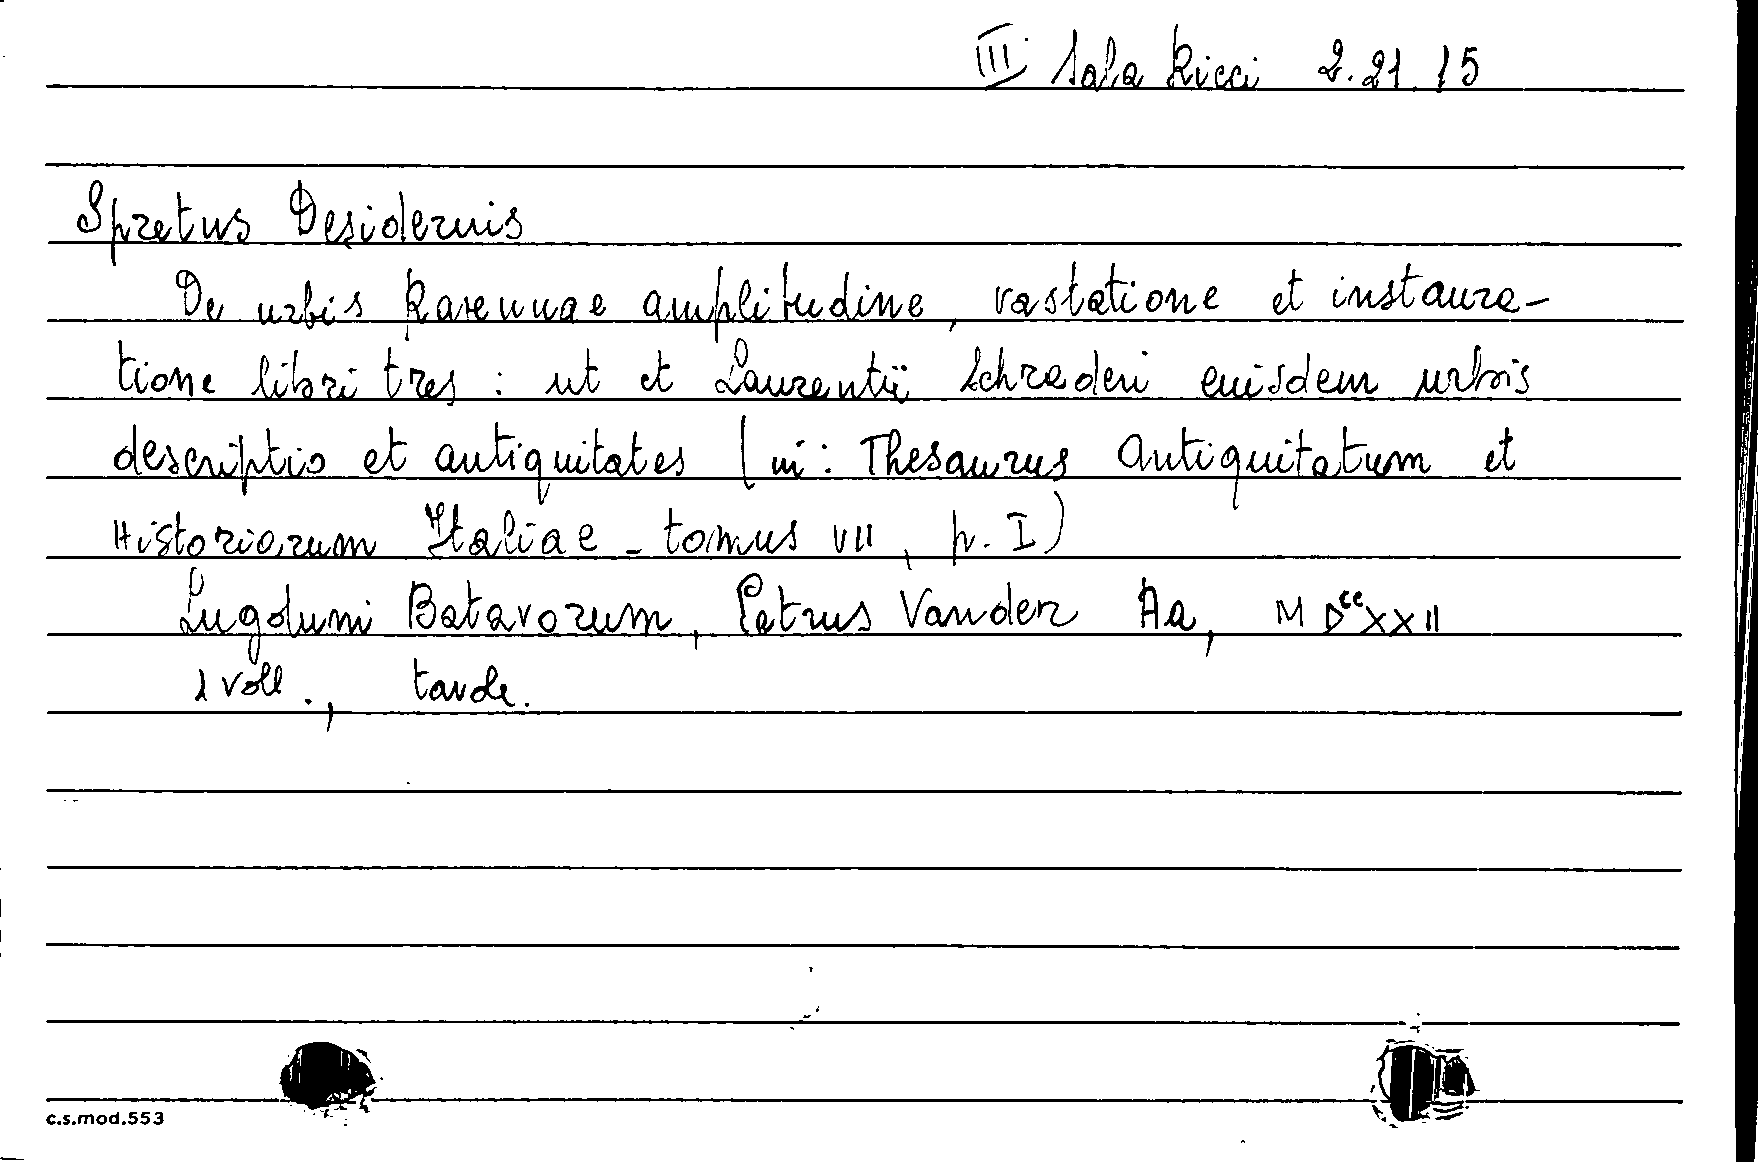 III Sala Ricci 2.21.15
Spretus Desiderius
De urbis Ravennae amplitudine, vastatione et instaura-
tione libri tres : ut et Laurentii Schraderi eiusdem urbis
descriptio et antiquitates (in: Thesaurus Antiquitatum et
Historiarum Italiae - tomus VII, p. I)
Lugduni Batavorum, Petrus Vander Aa, MDCCXXII
1 voll., tavole.
c.s.mod.553